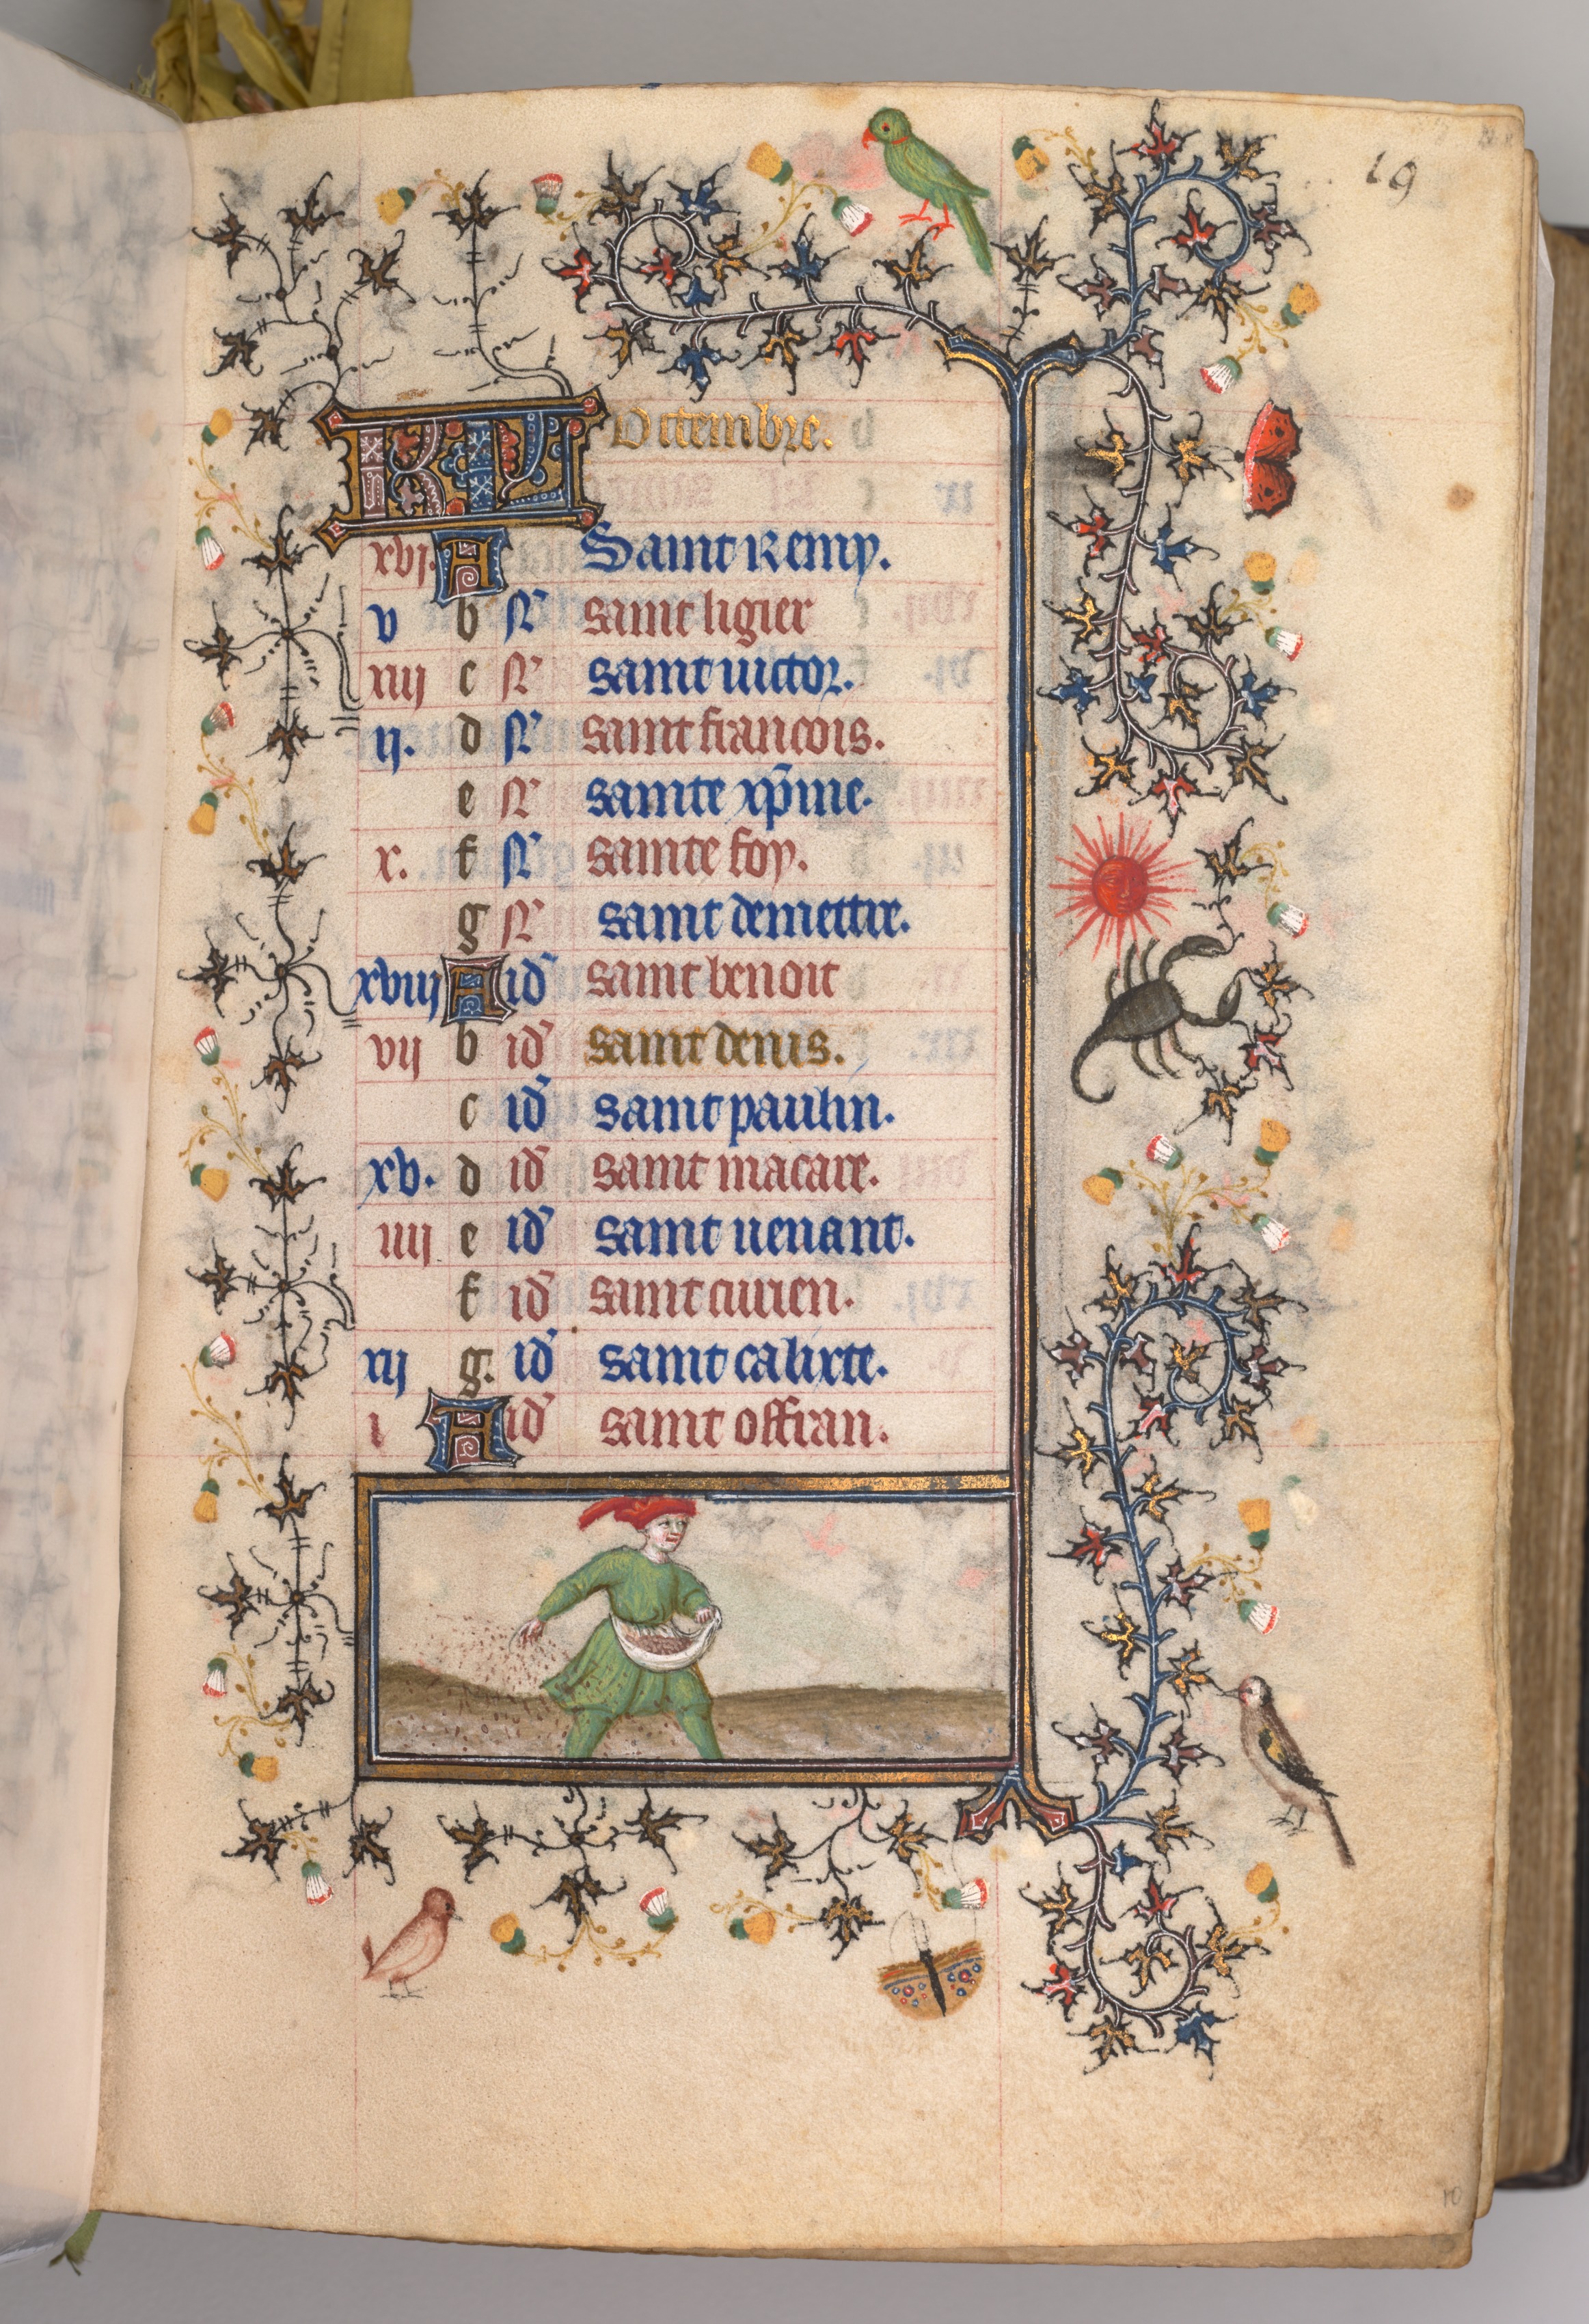 19
KL Octembre.
xvj. A Saint Remy.
v b N saint ligier
xiiij c N saint uictor.
ij. d N saint francois.
e N sainte xpine.
x. f N sainte foy.
g N saint demettre.
xviij A id saint benoit
vij b id saint denis.
c id saint paulin.
xv. d id saint macare.
iiij e id saint uenant.
f id saint
xij g. id saint calixte.
i A id saint offran.
10